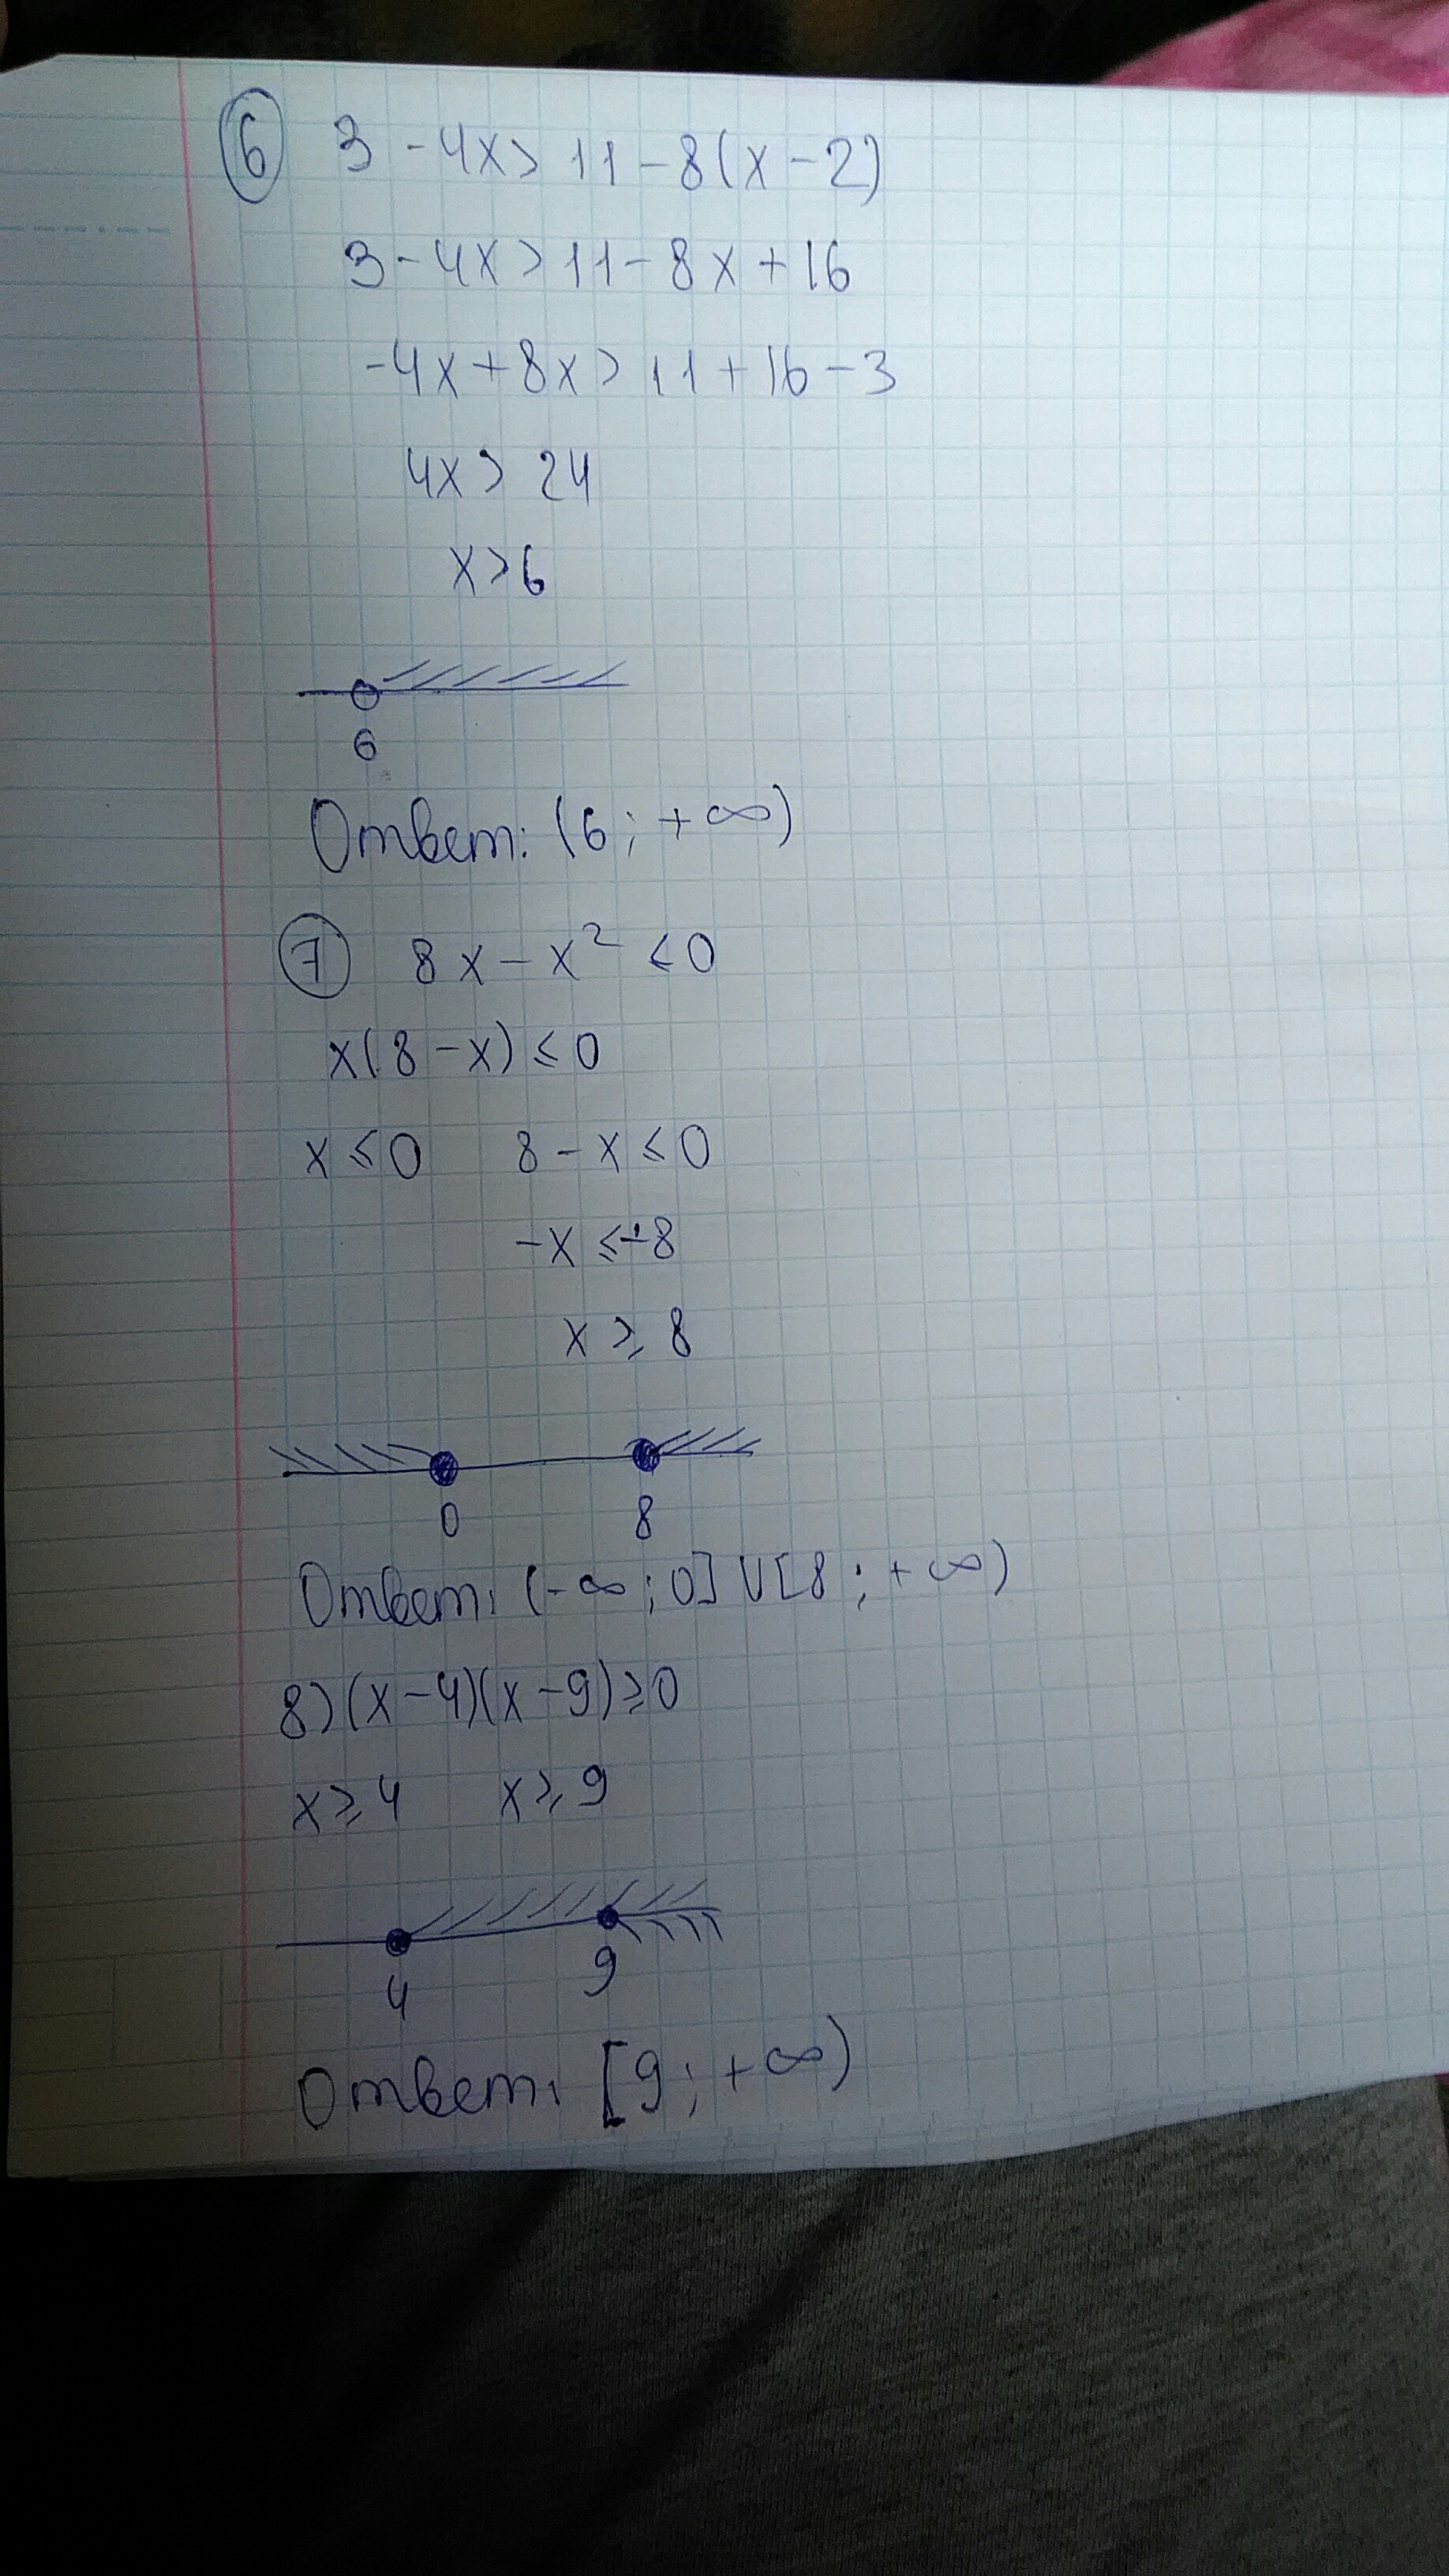 6 3 - 4x > 11 - 8(x - 2)
3 - 4x > 11 - 8x + 16
-4x + 8x > 11 + 16 - 3
4x > 24
x > 6
6
Ответ: (6; +∞)
7 8x - x² ≤ 0
x(8 - x) ≤ 0
x ≤ 0 8 - x ≤ 0
-x ≤ -8
x ≥ 8
0 8
Ответ: (-∞; 0] U [8; +∞)
8) (x - 4)(x - 9) ≥ 0
x ≥ 4 x ≥ 9
4 9
Ответ: [9; +∞)